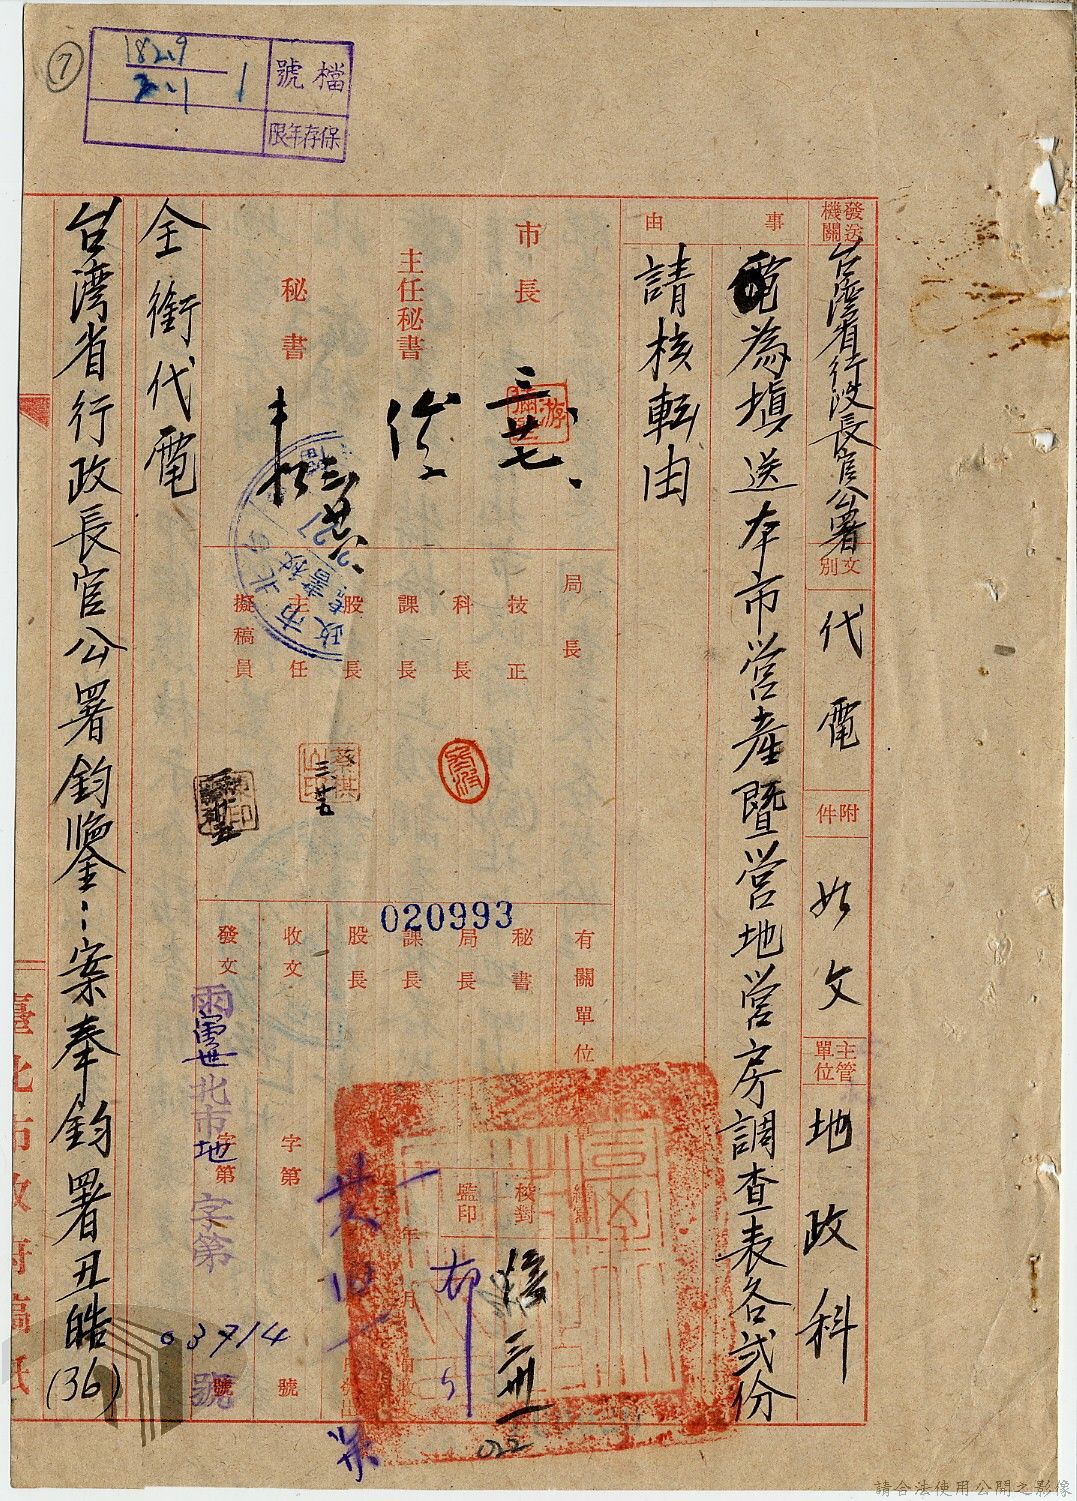 ⑦
檔號
1829
211
1
保存年限
發送機關
台灣省行政長官公署
文別
代電
附件
如文
主管單位
地政科
事由
電為填送本市營產暨營地營房調查表各弍份
請核轉由
市長
三廿七
主任秘書
秘書
局長
技正
科長
課長
股長
主任
擬稿員
020993
有關單位
秘書
局長
課長
股長
收文
字第
號
發文
字第
號
北市地
字第
03714
號
繕寫
校對
監印
年
月
022
全銜代電
台灣省行政長官公署鈞鑒：案奉鈞署丑皓(36)
臺北市政府稿紙
請合法使用公開之影像